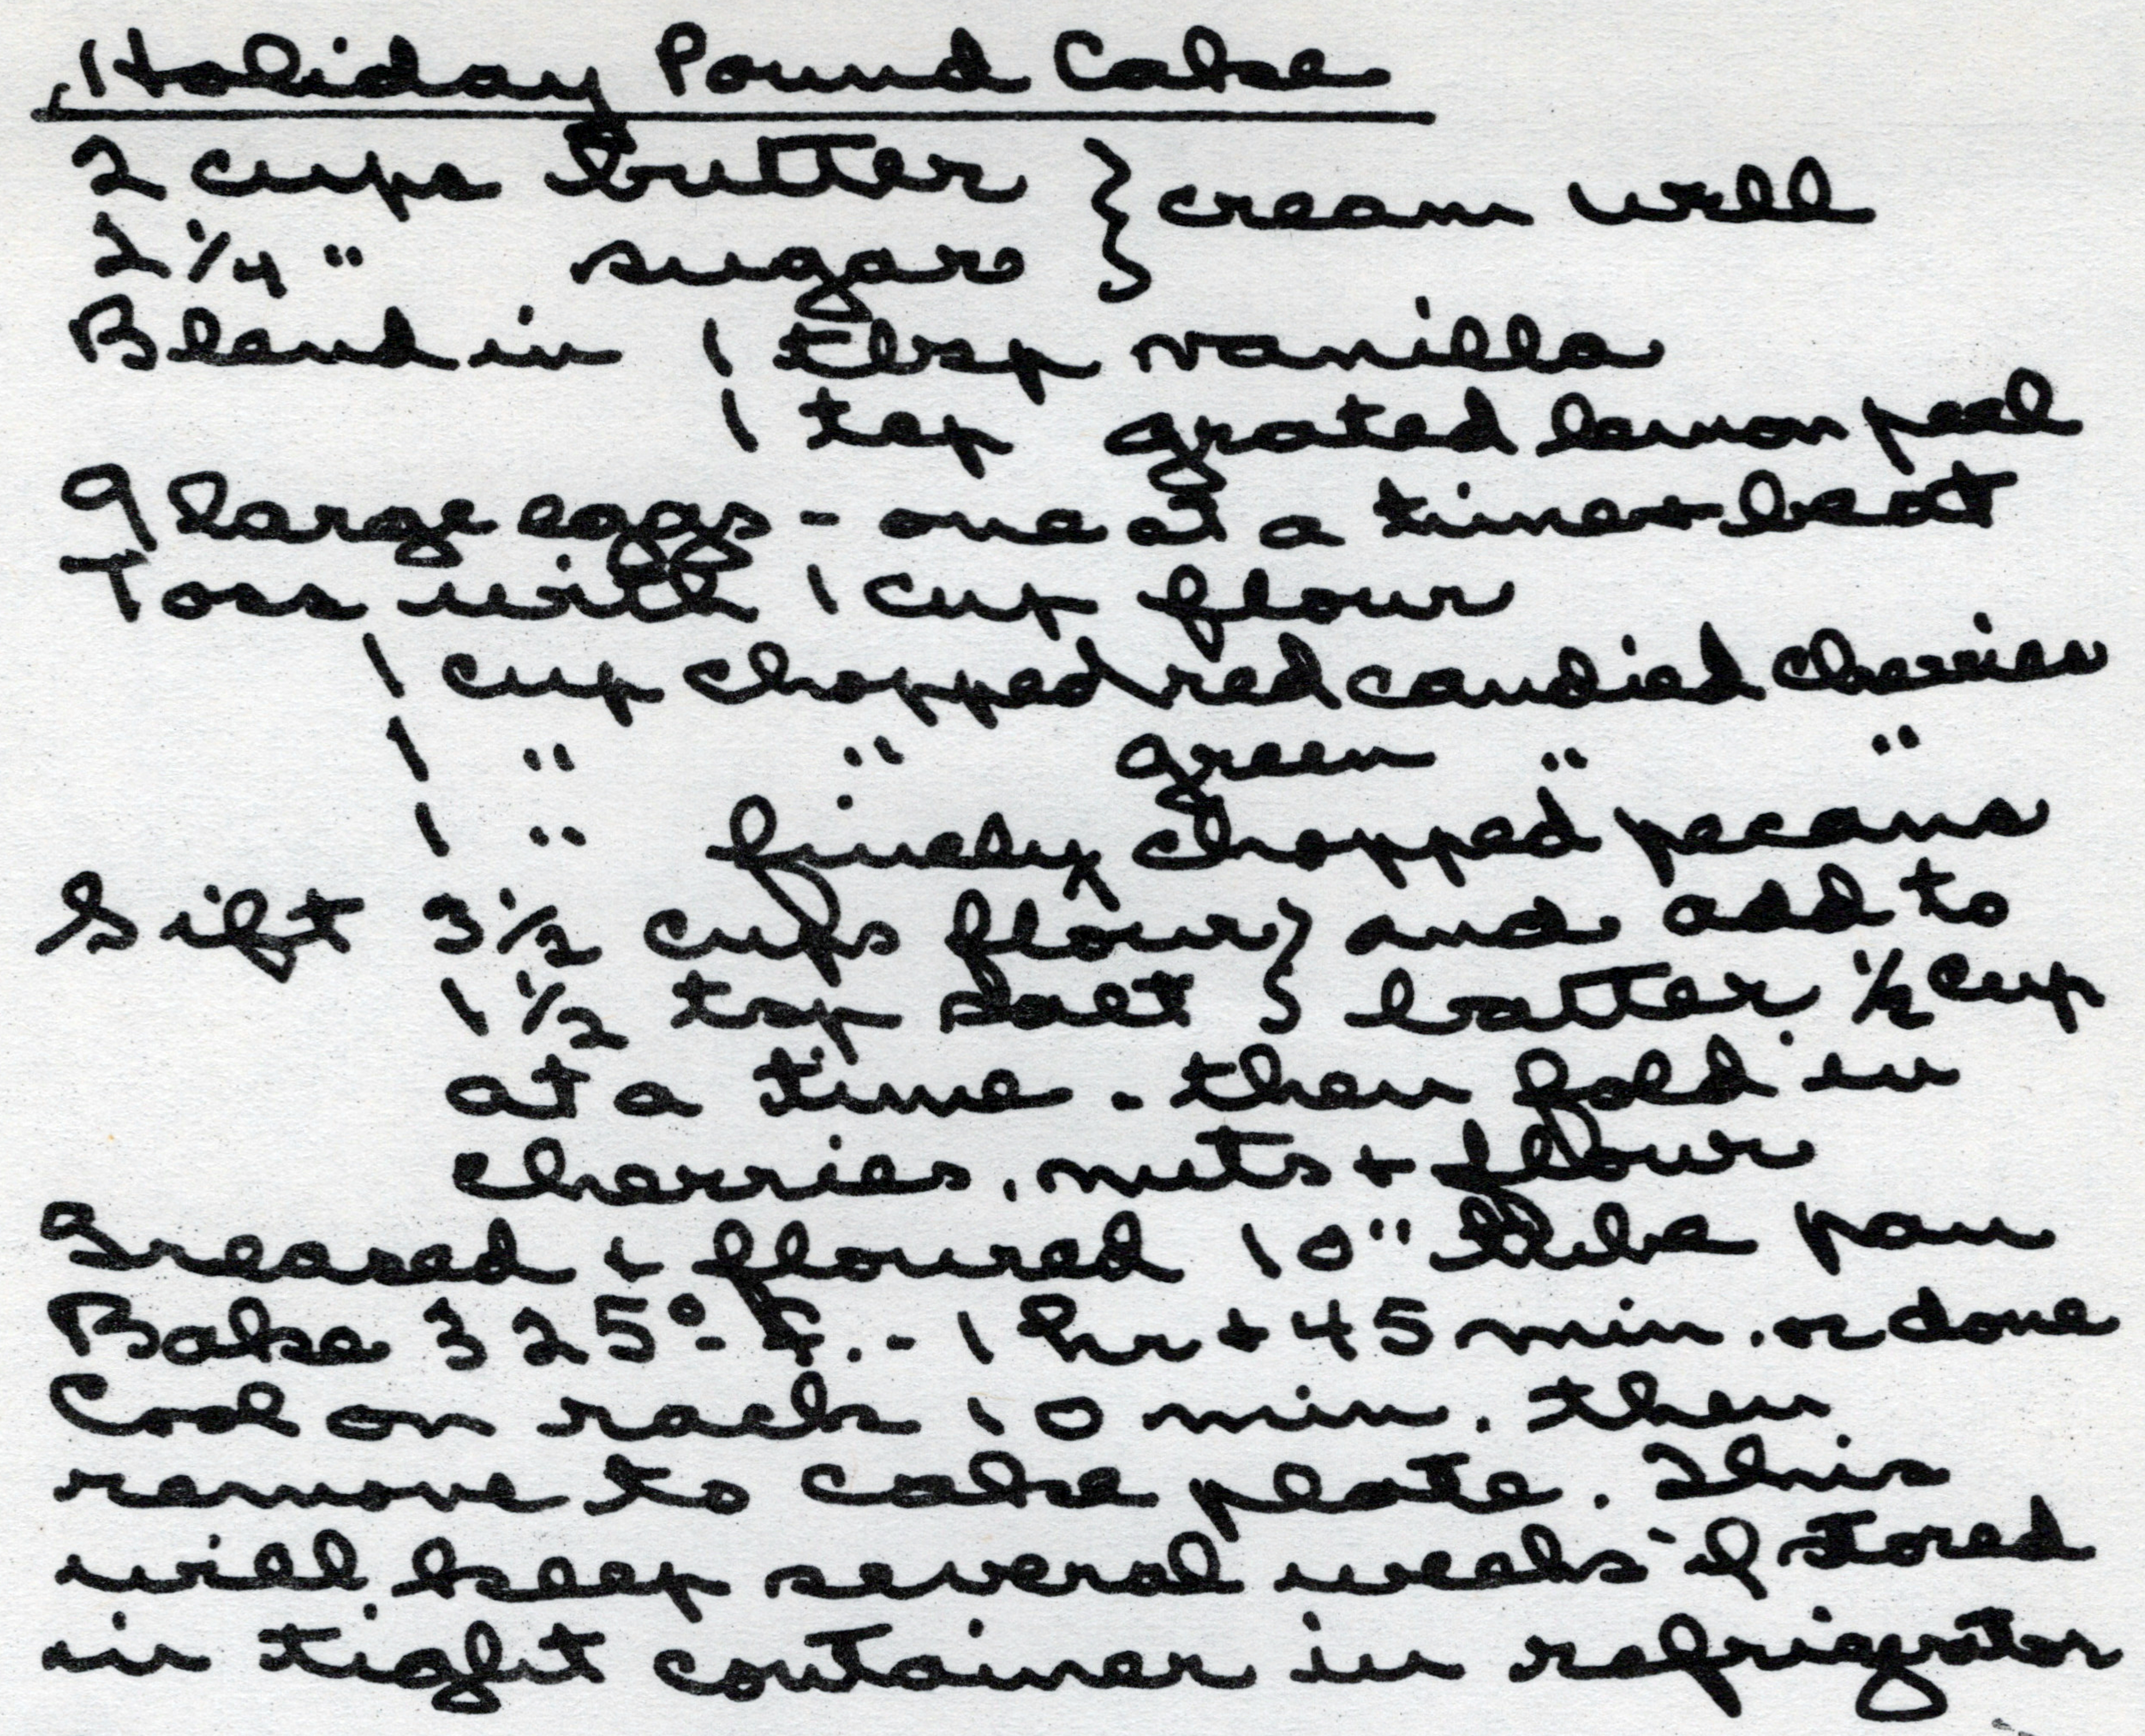 Holiday Pound Cake
2 cups butter } cream well
2 1/4 " sugar }
Blend in 1 tbsp vanilla
1 tsp grated lemon peel
9 large eggs - one at a time + beat
Toss with 1 cup flour
1 cup chopped red candied cherries
1 " " green " "
1 " finely chopped pecans
Sift 3 1/2 cups flour } and add to
1 1/2 tsp salt } batter 1/2 cup
at a time. then fold in
cherries, nuts + flour
Greased + floured 10" tube pan
Bake 325° F. - 1 hr + 45 min. or done
Cool on rack 10 min. then
remove to cake plate. This
will keep several weeks if stored
in tight container in refrigrator